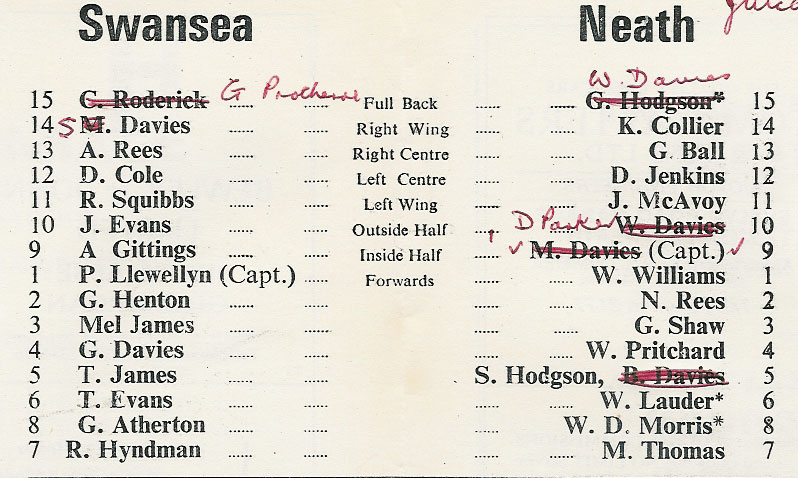 Swansea Neath
W. Davies
15 G. Roderick G Protheroe ...... ...... Full Back ...... ...... G. Hodgson* 15
14 S M. Davies ...... ...... Right Wing ...... ...... K. Collier 14
13 A. Rees ...... ...... Right Centre ...... ...... G. Ball 13
12 D. Cole ...... ...... Left Centre ...... ...... D. Jenkins 12
11 R. Squibbs ...... ...... Left Wing ...... ...... J. McAvoy 11
10 J. Evans ...... ...... Outside Half ...... D Parker W. Davies 10
9 A Gittings ...... ...... Inside Half ✓ M. Davies (Capt.) ✓ 9
1 P. Llewellyn (Capt.) ...... Forwards ...... ...... W. Williams 1
2 G. Henton ...... ...... ...... ...... N. Rees 2
3 Mel James ...... ...... ...... ...... G. Shaw 3
4 G. Davies ...... ...... ...... ...... W. Pritchard 4
5 T. James ...... ...... S. Hodgson, B. Davies 5
6 T. Evans ...... ...... ...... ...... W. Lauder* 6
8 G. Atherton ...... ...... ...... W. D. Morris* 8
7 R. Hyndman ...... ...... ...... ...... M. Thomas 7